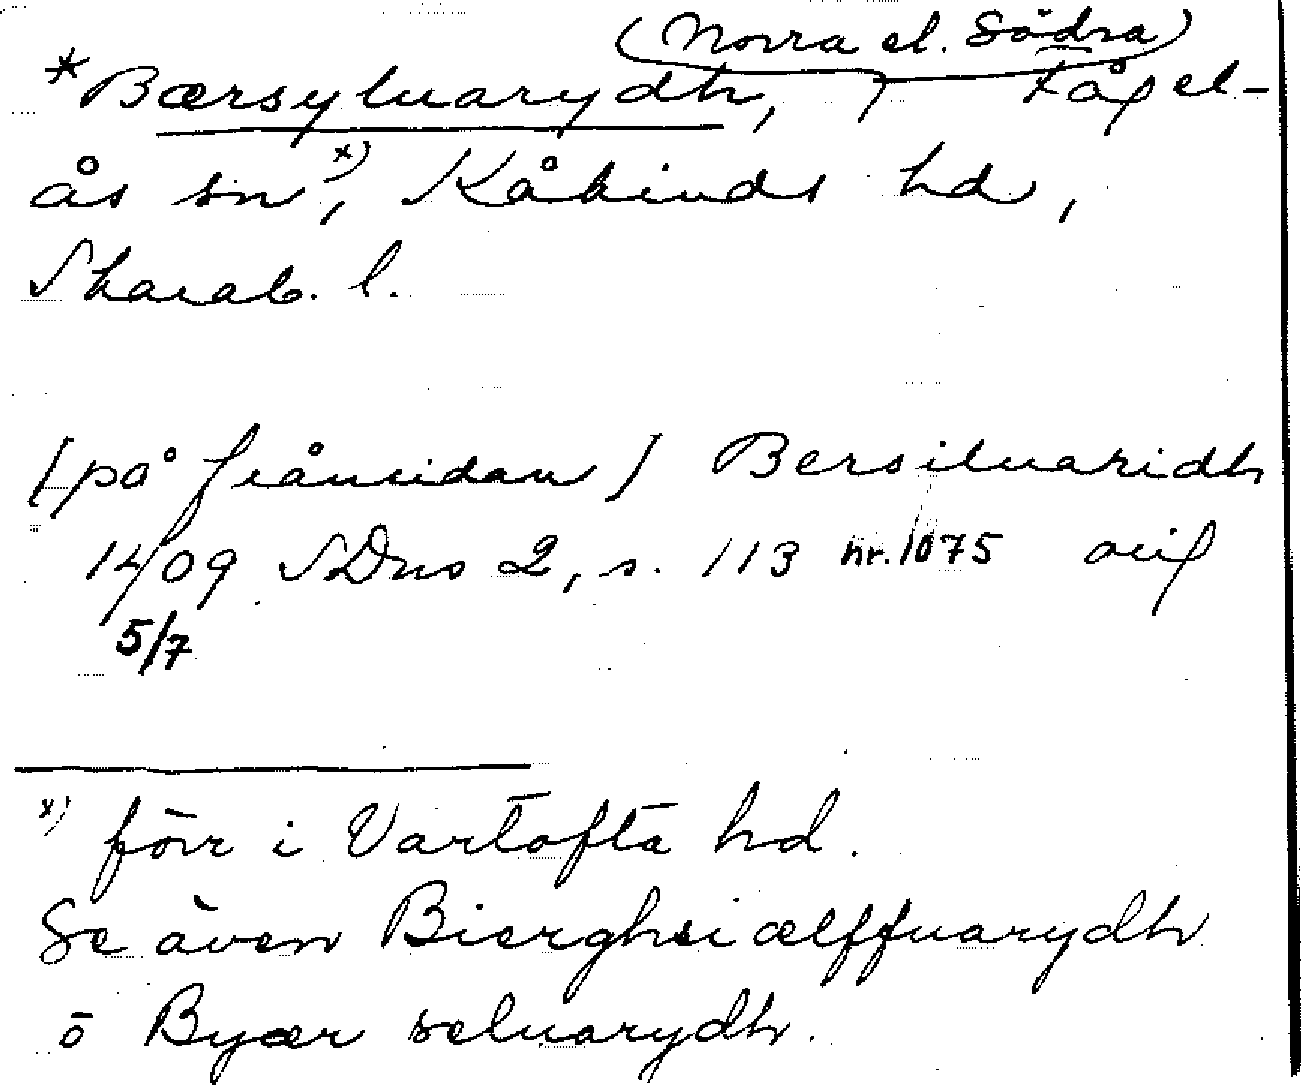 (Norra el. Södra)
*Bærsyluarydh, Fågel-
ås sn x), Kåkinds hd,
Skarab. l.
[på frånsidan] Bersiluaridh
1409 SDns 2, s. 113 nr. 1075 avif
5/7
x) förr i Vartofta hd.
Se även Bierghsiælffuarydh
o Byær seluarydh.